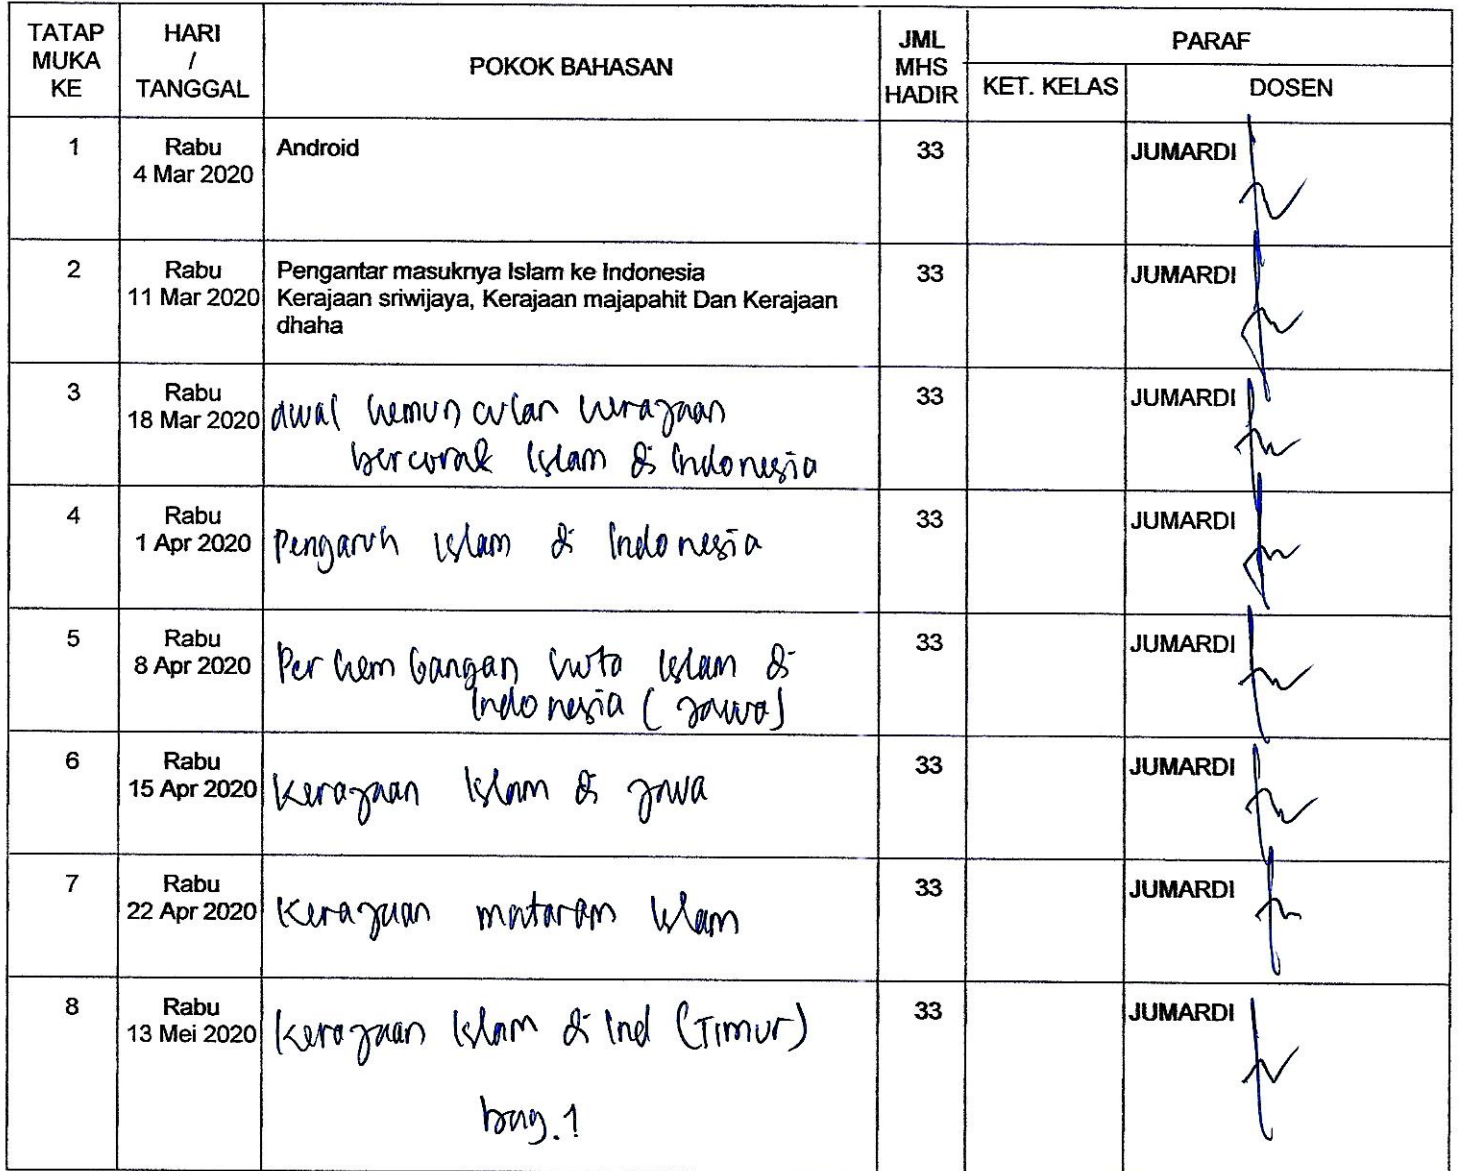 TATAP MUKA KE
HARI / TANGGAL
POKOK BAHASAN
JML MHS HADIR
PARAF
KET. KELAS
DOSEN
1
Rabu
4 Mar 2020
Android
33
JUMARDI
2
Rabu
11 Mar 2020
Pengantar masuknya Islam ke Indonesia
Kerajaan sriwijaya, Kerajaan majapahit Dan Kerajaan
dhaha
33
JUMARDI
3
Rabu
18 Mar 2020
awal kemunculan kerajaan
bercorak Islam di Indonesia
33
JUMARDI
4
Rabu
1 Apr 2020
Pengaruh Islam di Indonesia
33
JUMARDI
5
Rabu
8 Apr 2020
Perkembangan kota Islam di
Indonesia (Jawa)
33
JUMARDI
6
Rabu
15 Apr 2020
Kerajaan Islam di Jawa
33
JUMARDI
7
Rabu
22 Apr 2020
Kerajaan mataram Islam
33
JUMARDI
8
Rabu
13 Mei 2020
Kerajaan Islam di Ind (Timur)
bag. 1
33
JUMARDI